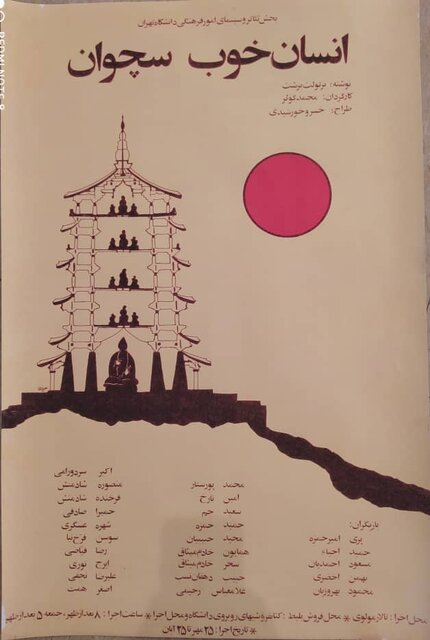 بخش تئاتر و سینمای امور فرهنگی دانشگاه تهران
انسان خوب سچوان
نوشته: برتولت برشت
کارگردان: محمد کوثر
طراح: خسرو خورشیدی
بازیگران:
پری امیرحمزه
حمید احیاء
مسعود احمدیان
بهمن احضری
محمود بهروزیان
محمد پورستار
امین تارخ
سعید حم
حمید حمزه
مجید حبیبیان
همایون خادم‌میثاق
سحر خادم‌میثاق
حبیب دهقان‌نسب
غلامعباس رحیمی
اکبر سردورامی
منصوره شادمنش
فرخنده شادمنش
حمیرا صادقی
شهره عسگری
سوسن فرخ‌نیا
رضا فیاضی
ایرج نوری
علیرضا نخعی
اصغر همت
محل اجرا: تالار مولوی * محل فروش بلیط: کتابفروشیهای روبروی دانشگاه و محل اجرا * ساعت اجرا: ۸ بعدازظهر، جمعه ۵ بعدازظهر
* تاریخ اجرا: ۲۵ مهر تا ۲۵ آبان
REDMI NOTE 8